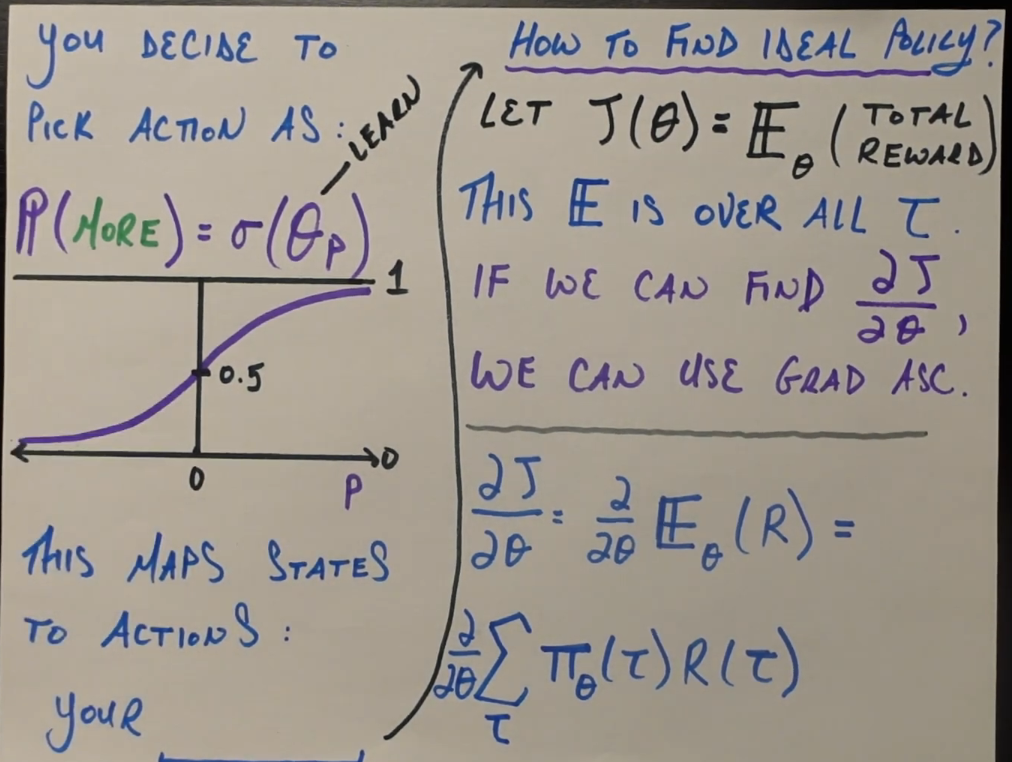 YOU DECIDE TO
PICK ACTION AS:
LEARN
ℙ(MORE) = σ(θp)
1
0.5
0
0
P
THIS MAPS STATES
TO ACTIONS:
YOUR
HOW TO FIND IDEAL POLICY?
LET J(θ) = 𝔼_θ (TOTAL REWARD)
THIS 𝔼 IS OVER ALL τ.
IF WE CAN FIND ∂J/∂θ,
WE CAN USE GRAD ASC.
∂J/∂θ = ∂/∂θ 𝔼_θ (R) =
∂/∂θ Σ_τ π_θ(τ) R(τ)